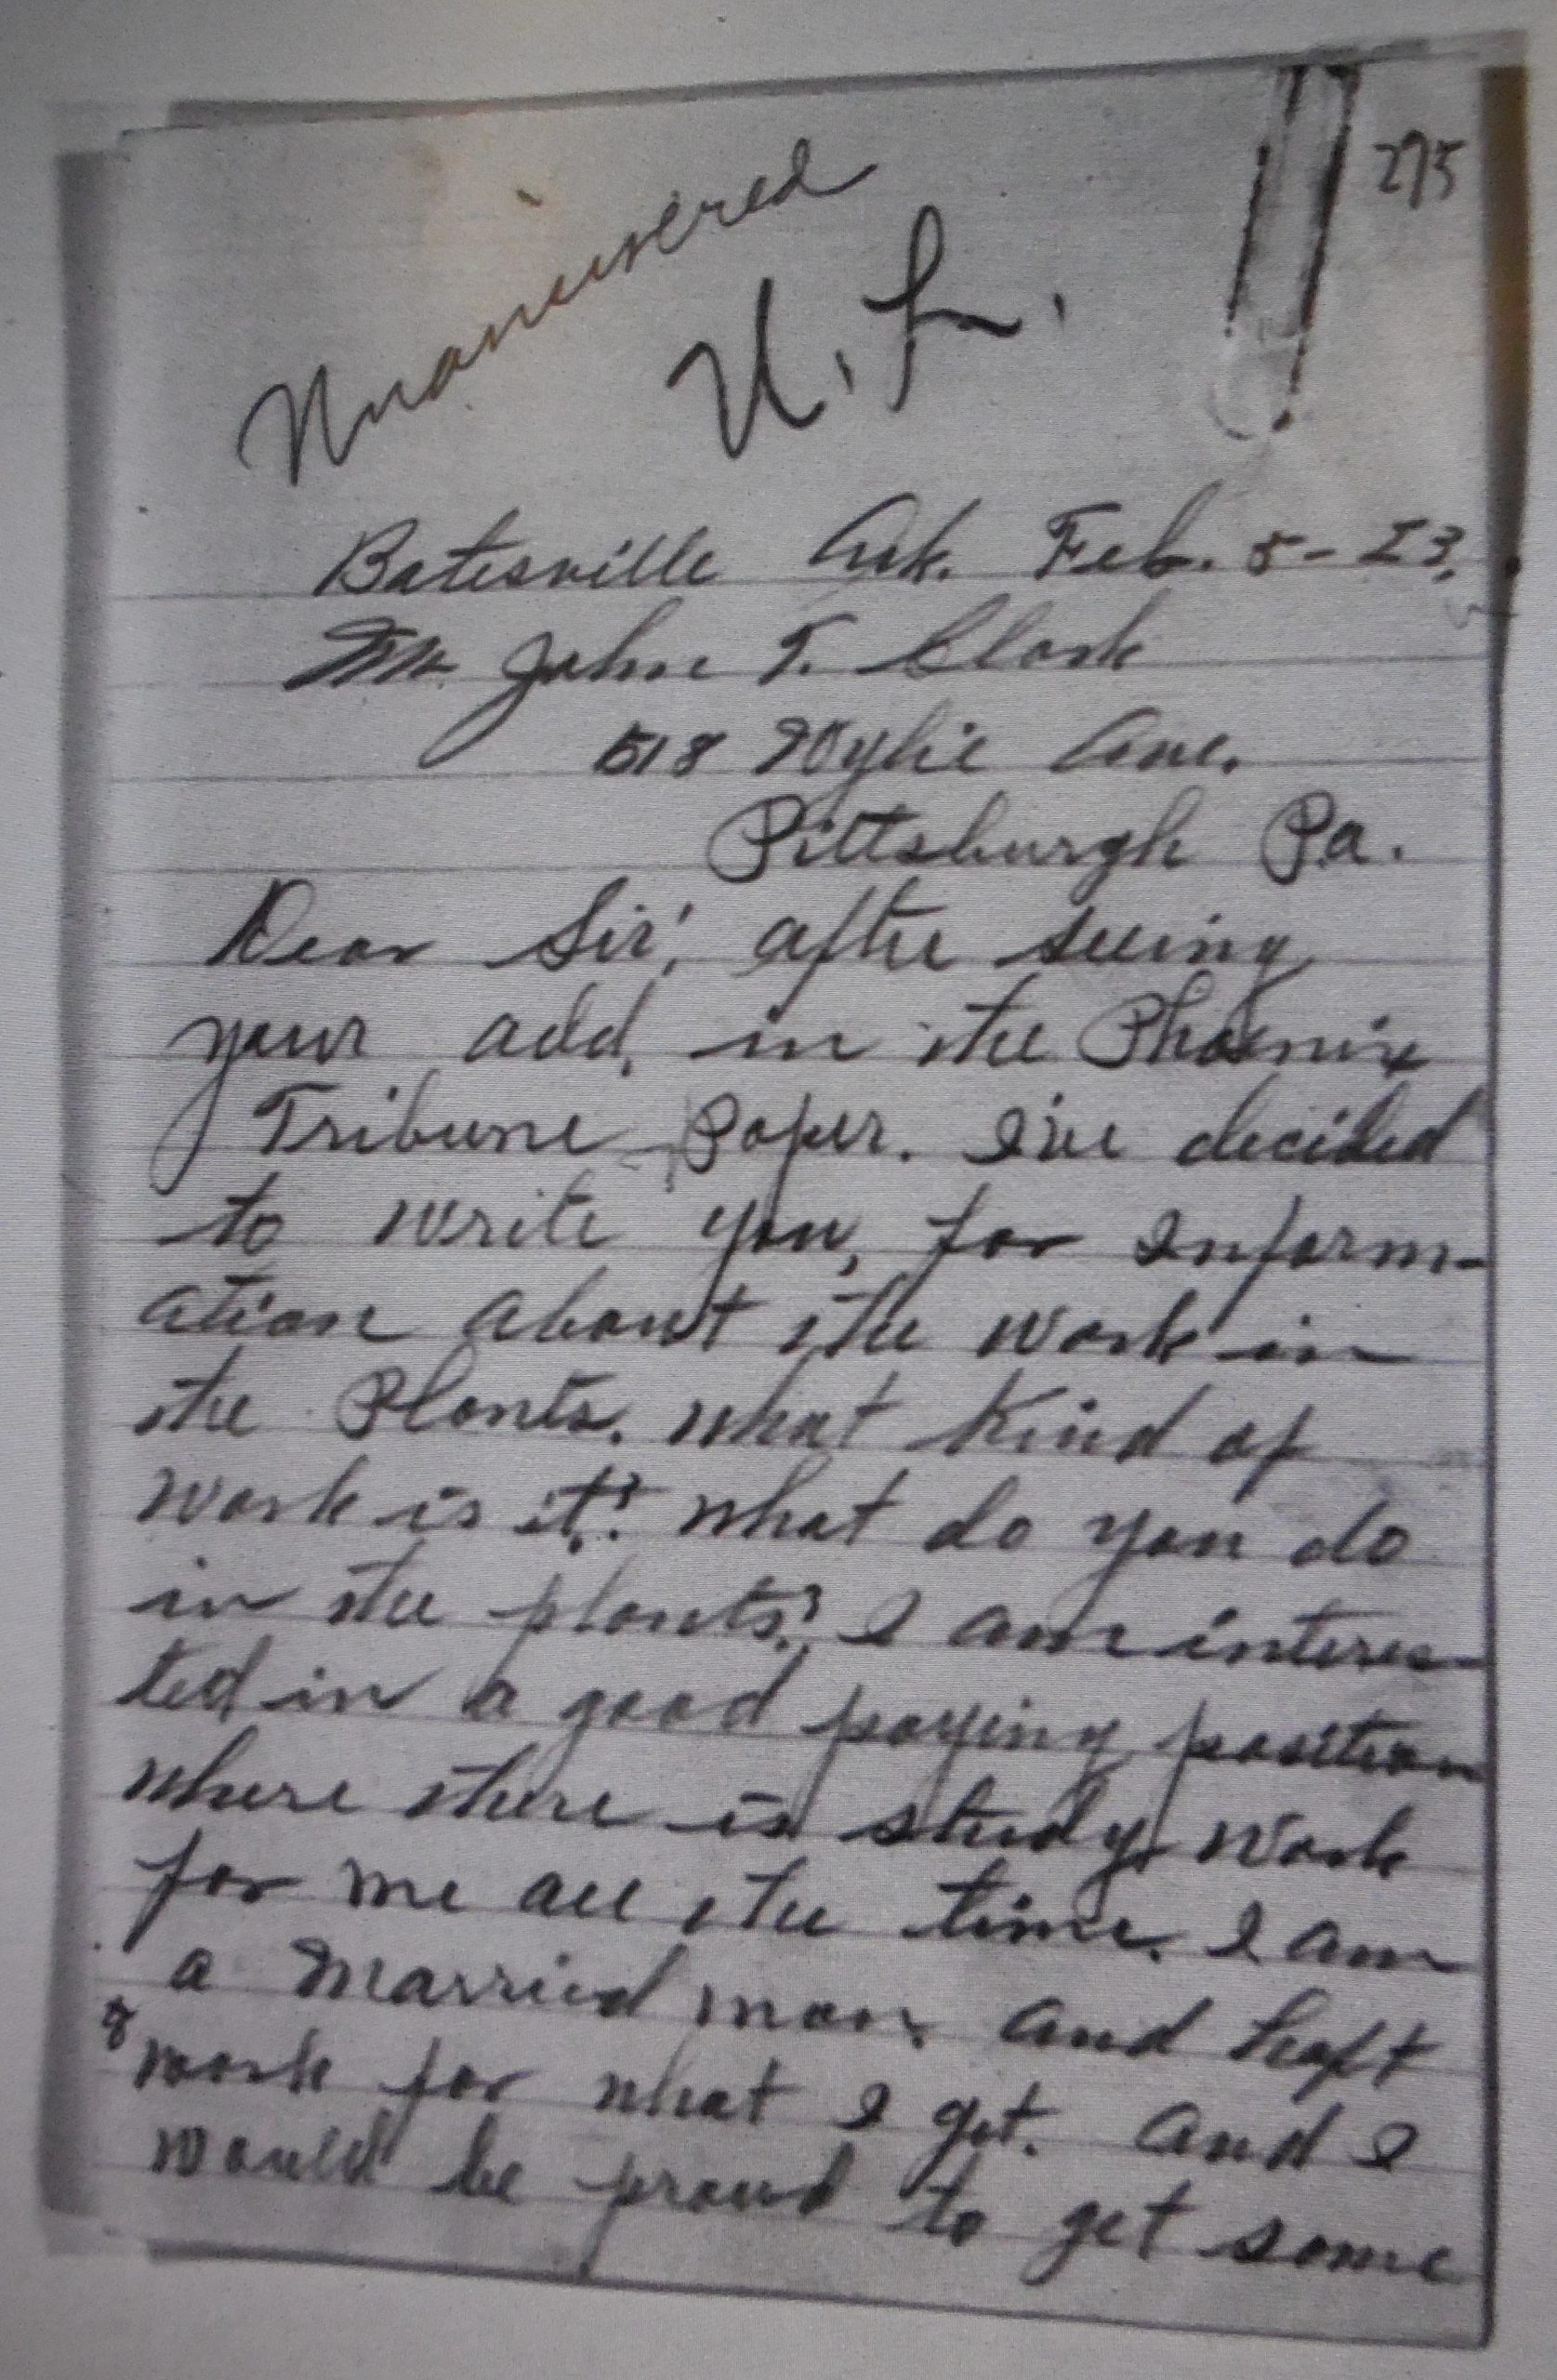 275
Unanswered
U. L.
Batesville Ark. Feb. 5-23,
Mr. John T. Clark
518 Wylie Ave.
Pittsburgh Pa.
Dear Sir; after seeing
your add, in the Phoenix
Tribune Paper. I've decided
to write you, for Inform-
ation about the work in
the Plants. what kind of
work is it? what do you do
in the plants? I am interes-
ted in a good paying position
where there is study work
for me all the time. I am
a Married man and haft
work for what I get. and I
would be proud to get some